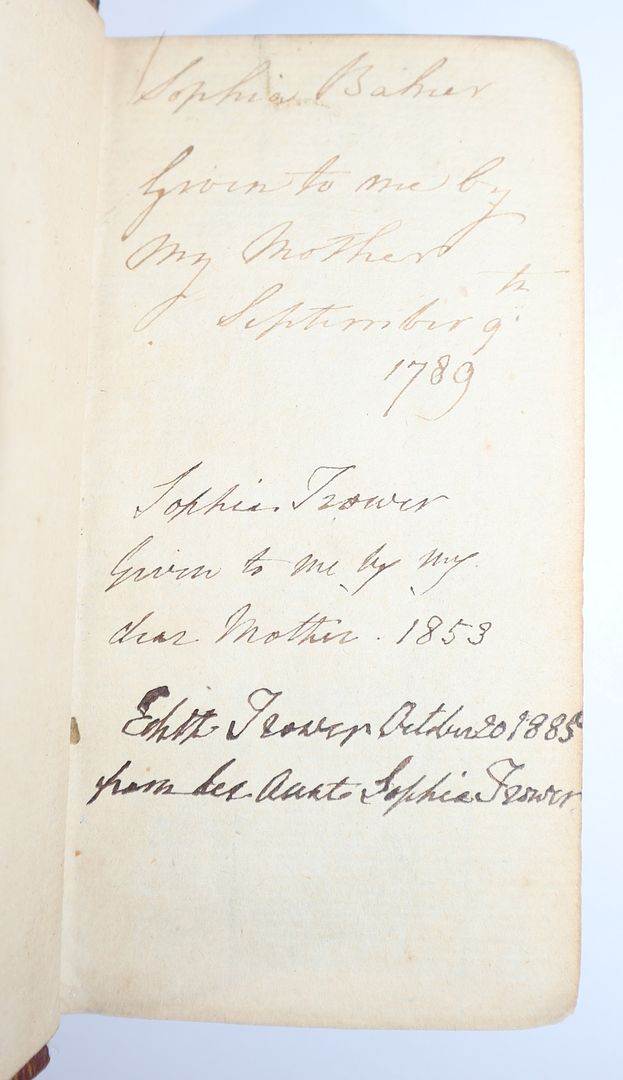 Sophia Baker
Given to me by
My Mother
September 9th
1789
Sophia Trower
Given to me by my
dear Mother. 1853
Edith Trower October 20 1885
from her Aunt Sophia Trower